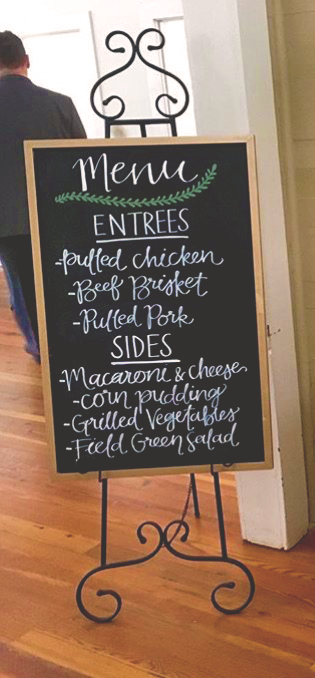 Menu
ENTREES
-pulled chicken
-Beef Brisket
-Pulled Pork
SIDES
-Macaroni & cheese
-corn pudding
-Grilled Vegetables
-Field Green Salad